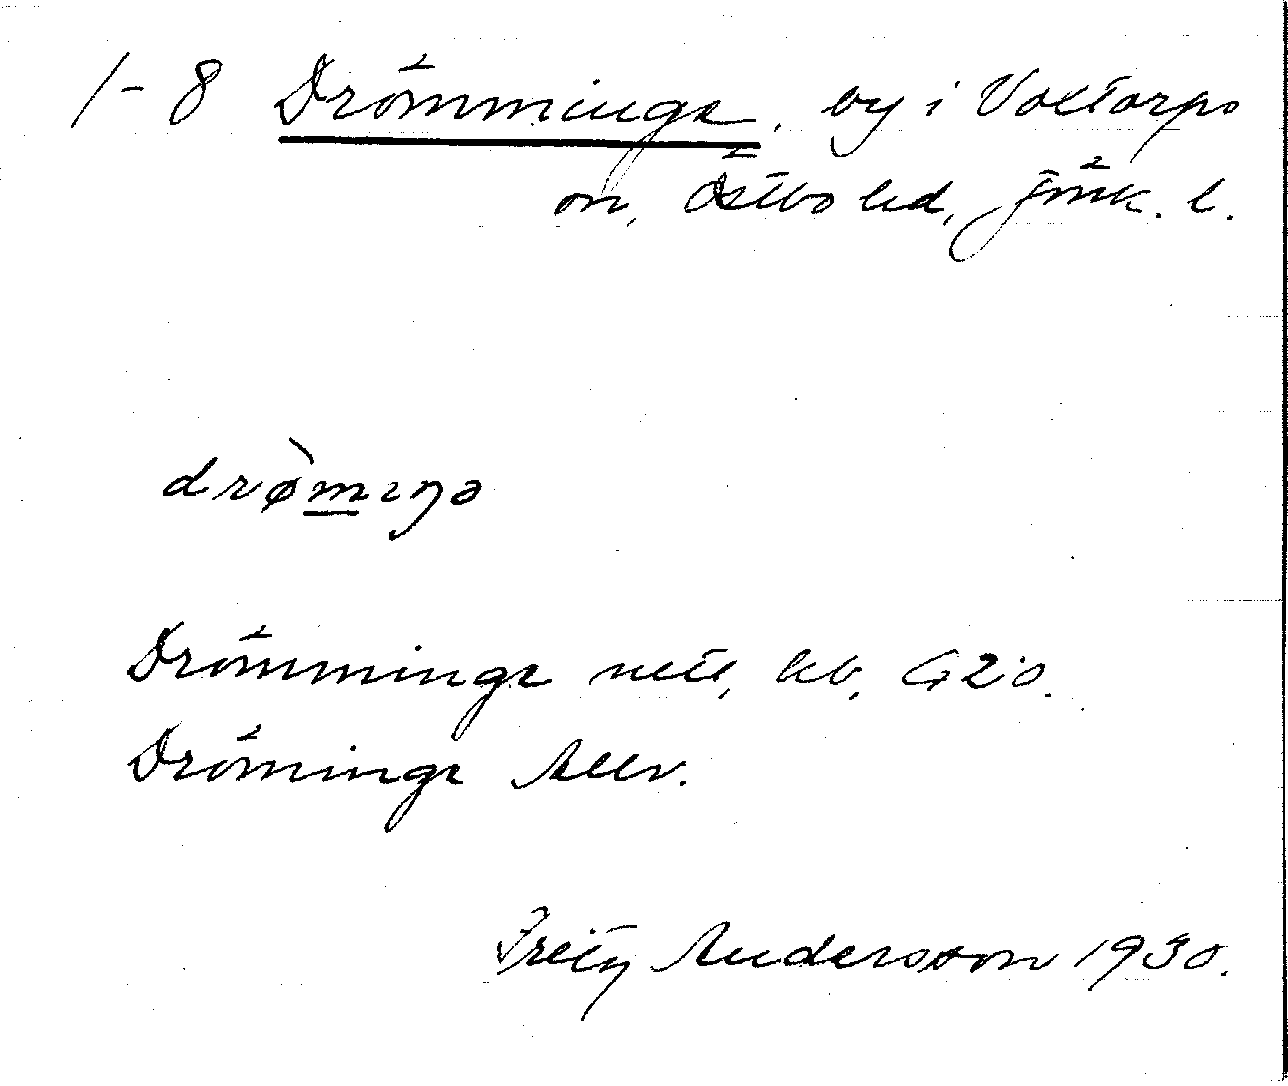 1-8 Drömminge, by i Voxtorps
sn, Östbo hd, Jönk. l.
drø̀mıŋə
Drömminge uttl, kb, G20.
Dröminge Allv.
Fritz Andersson 1930.